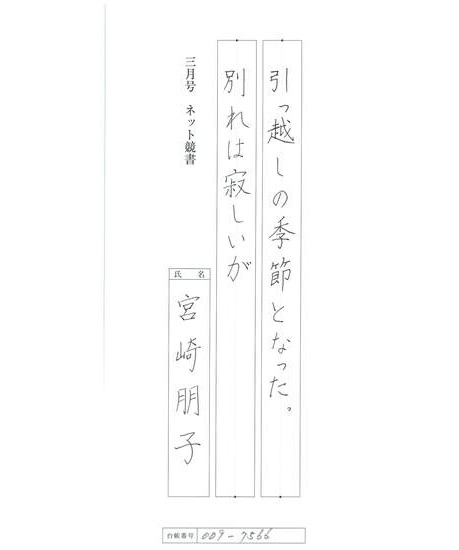 引っ越しの季節となった。
別れは寂しいが
三月号 ネット競書
氏名
宮崎朋子
台帳番号 009-7566